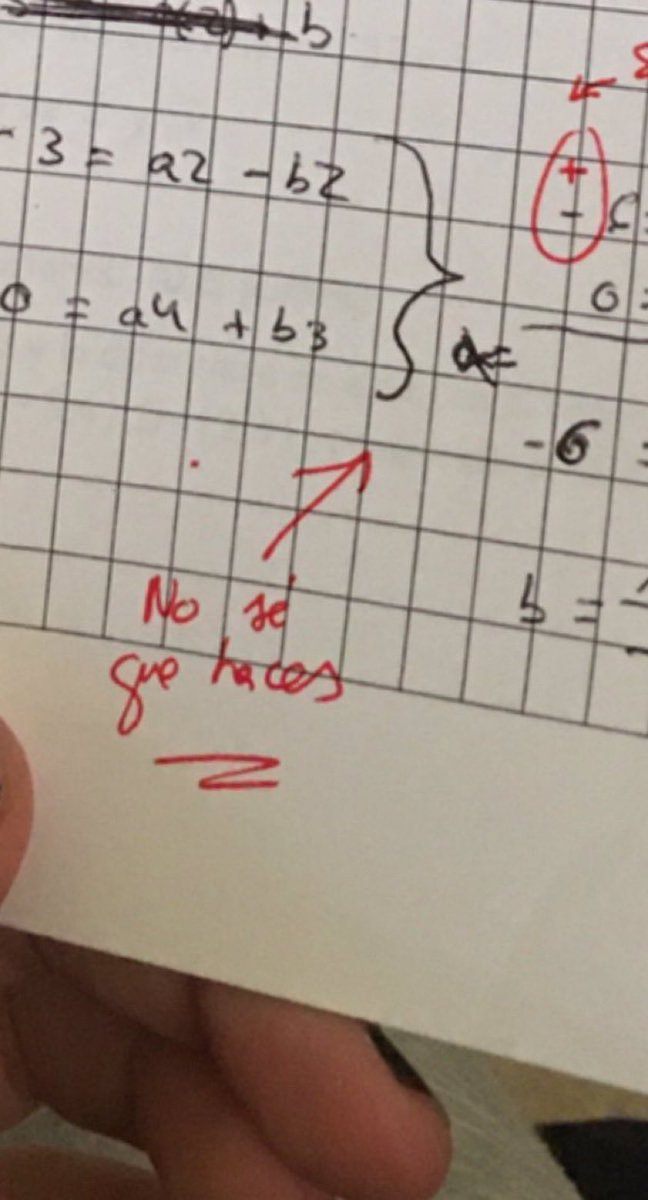 b
- 3 = a2 - b2
0 = a4 + b3
+
-
0 =
-6 =
b =
No sé
que haces